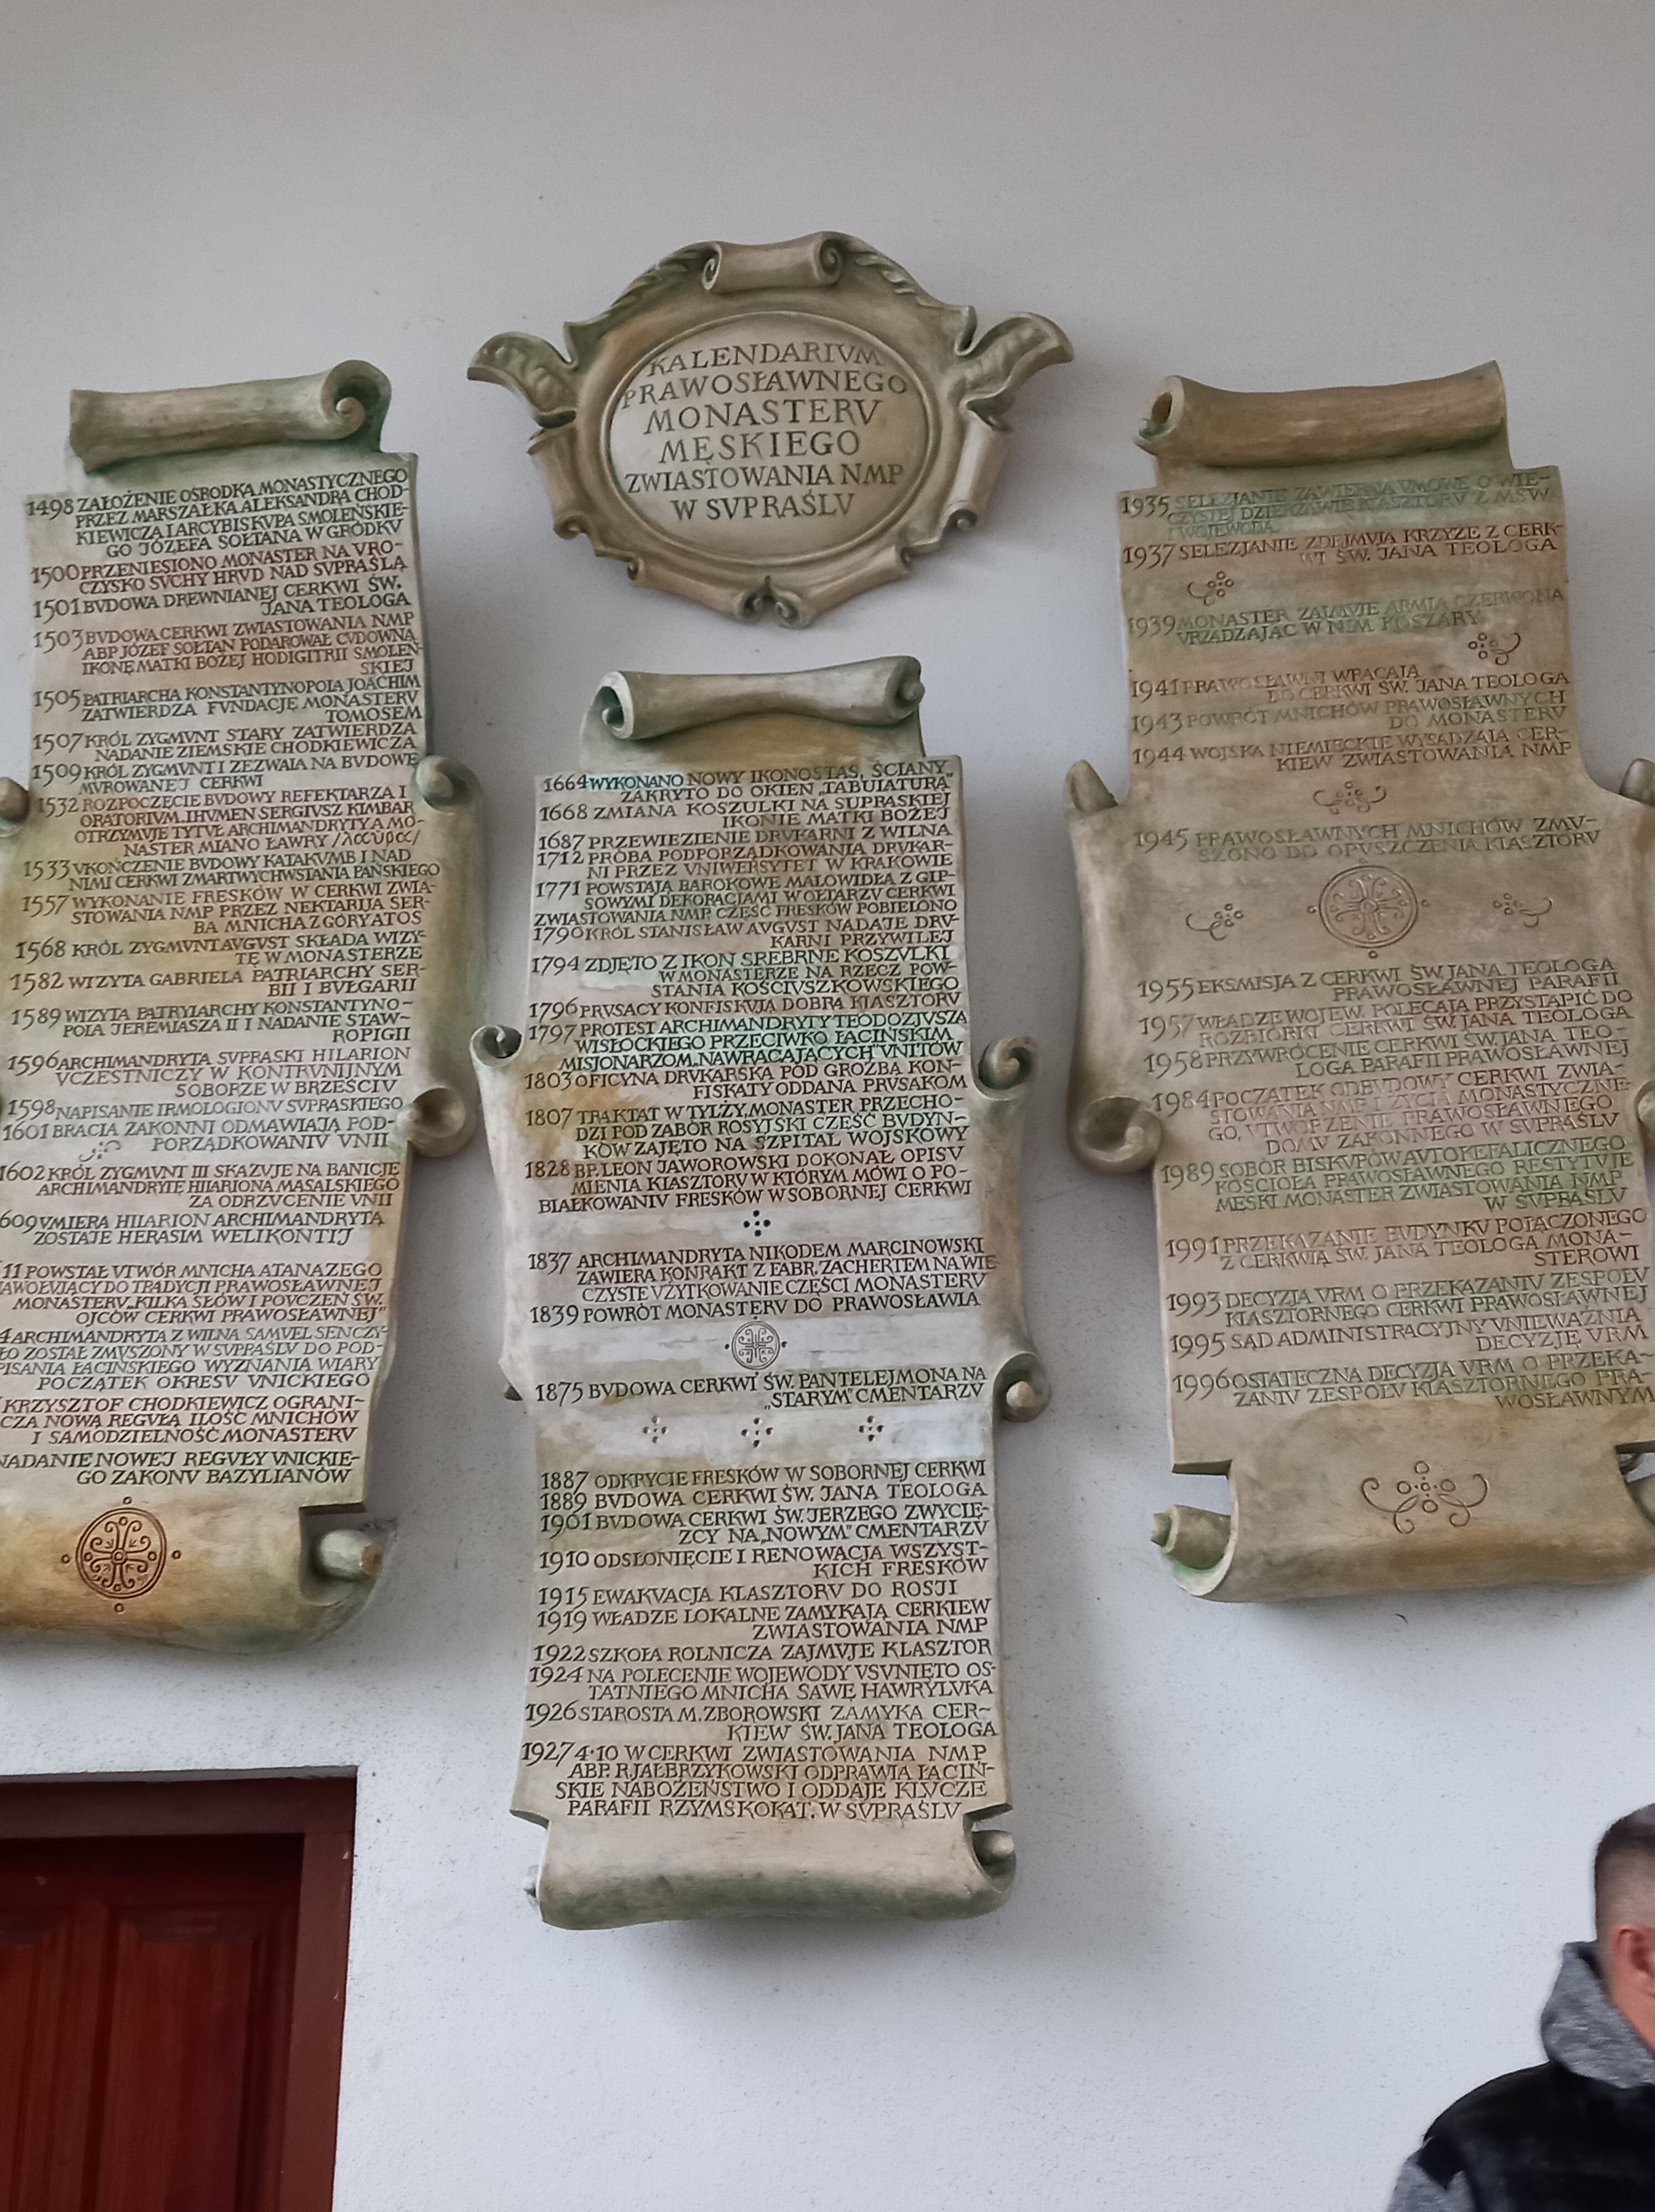 KALENDARIVM
PRAWOSŁAWNEGO
MONASTERV
MĘSKIEGO
ZWIASTOWANIA NMP
W SVPRAŚLV
1498 ZAŁOŻENIE OŚRODKA MONASTYCZNEGO
PRZEZ MARSZAŁKA ALEKSANDRA CHOD-
KIEWICZA I ARCYBISKVPA SMOLEŃSKIE-
GO JÓZEFA SOŁTANA W GRÓDKV
1500 PRZENIESIONO MONASTER NA VRO-
CZYSKO SVCHY HRVD NAD SVPRAŚLĄ
1501 BVDOWA DREWNIANEJ CERKWI ŚW.
JANA TEOLOGA
1503 BVDOWA CERKWI ZWIASTOWANIA NMP
ABP JÓZEF SOŁTAN PODAROWAŁ CVDOWNĄ
IKONĘ MATKI BOŻEJ HODIGITRII SMOLEŃ-
SKIEJ
1505 PATRIARCHA KONSTANTYNOPOLA JOACHIM
ZATWIERDZA FVNDACJĘ MONASTERV
TOMOSEM
1507 KRÓL ZYGMVNT STARY ZATWIERDZA
NADANIE ZIEMSKIE CHODKIEWICZA
1509 KRÓL ZYGMVNT I ZEZWALA NA BVDOWĘ
MVROWANEJ CERKWI
1532 ROZPOCZĘCIE BVDOWY REFEKTARZA I
ORATORIVM. IHVMEN SERGIVSZ KIMBAR
OTRZYMVJE TYTVŁ ARCHIMANDRYTY A MO-
NASTER MIANO ŁAWRY /λαύρα/
1533 VKOŃCZENIE BVDOWY KATAKVMB I NAD
NIMI CERKWI ZMARTWYCHWSTANIA PAŃSKIEGO
1557 WYKONANIE FRESKÓW W CERKWI ZWIA-
STOWANIA NMP PRZEZ NEKTARIJA SER-
BA MNICHA Z GÓRY ATOS
1568 KRÓL ZYGMVNT AVGVST SKŁADA WIZY-
TĘ W MONASTERZE
1582 WIZYTA GABRIELA PATRIARCHY SER-
BII I BVŁGARII
1589 WIZYTA PATRYIARCHY KONSTANTYNO-
POLA JEREMIASZA II I NADANIE STAW-
ROPIGII
1596 ARCHIMANDRYTA SVPRASKI HILARION
VCZESTNICZY W KONTRVNIJNYM
SOBORZE W BRZEŚCIV
1598 NAPISANIE IRMOLOGIONV SVPRASKIEGO
1601 BRACIA ZAKONNI ODMAWIAJĄ POD-
PORZĄDKOWANIV VNII
1602 KRÓL ZYGMVNT III SKAZVJE NA BANICJĘ
ARCHIMANDRYTĘ HILARIONA MASALSKIEGO
ZA ODRZVCENIE VNII
609 VMIERA HILARION ARCHIMANDRYTĄ
ZOSTAJE HERASIM WELIKONTIJ
11 POWSTAŁ VTWÓR MNICHA ATANAZEGO
NAWOŁVJĄCY DO TRADYCJI PRAWOSŁAWNEJ
MONASTERV „KILKA SŁÓW I POVCZEŃ ŚW.
OJCÓW CERKWI PRAWOSŁAWNEJ”
4 ARCHIMANDRYTA Z WILNA SAMVEL SENCZY-
ŁO ZOSTAŁ ZMVSZONY W SVPRAŚLV DO POD-
PISANIA ŁACIŃSKIEGO WYZNANIA WIARY
POCZĄTEK OKRESV VNICKIEGO
KRZYSZTOF CHODKIEWICZ OGRANI-
CZA NOWĄ REGVŁĄ ILOŚĆ MNICHÓW
I SAMODZIELNOŚĆ MONASTERV
NADANIE NOWEJ REGVŁY VNICKIE-
GO ZAKONV BAZYLIANÓW
1664 WYKONANO NOWY IKONOSTAS, ŚCIANY
ZAKRYTO DO OKIEN „TABVLATVRĄ”
1668 ZMIANA KOSZVLKI NA SVPRASKIEJ
IKONIE MATKI BOŻEJ
1687 PRZEWIEZIENIE DRVKARNI Z WILNA
1712 PRÓBA PODPORZĄDKOWANIA DRVKAR-
NI PRZEZ VNIWERSYTET W KRAKOWIE
1771 POWSTAJĄ BAROKOWE MALOWIDŁA Z GIP-
SOWYMI DEKORACJAMI W OŁTARZV CERKWI
ZWIASTOWANIA NMP. CZĘŚĆ FRESKÓW POBIELONO
1790 KRÓL STANISŁAW AVGVST NADAJE DRV-
KARNI PRZYWILEJ
1794 ZDJĘTO Z IKON SREBRNE KOSZVLKI
W MONASTERZE NA RZECZ POW-
STANIA KOŚCIVSZKOWSKIEGO
1796 PRVSACY KONFISKVJĄ DOBRA KLASZTORV
1797 PROTEST ARCHIMANDRYTY TEODOZJVSZA
WISŁOCKIEGO PRZECIWKO ŁACIŃSKIM
MISJONARZOM „NAWRACAJĄCYCH” VNITÓW
1803 OFICYNA DRVKARSKA POD GROŹBĄ KON-
FISKATY ODDANA PRVSAKOM
1807 TRAKTAT W TYLŻY, MONASTER PRZECHO-
DZI POD ZABÓR ROSYJSKI CZĘŚĆ BVDYN-
KÓW ZAJĘTO NA SZPITAL WOJSKOWY
1828 BP. LEON JAWOROWSKI DOKONAŁ OPISV
MIENIA KLASZTORV W KTÓRYM MÓWI O PO-
BIAŁKOWANIV FRESKÓW W SOBORNEJ CERKWI
1837 ARCHIMANDRYTA NIKODEM MARCINOWSKI
ZAWIERA KONRAKT Z FABR. ZACHERTEM NA WIE
CZYSTE VŻYTKOWANIE CZĘŚCI MONASTERV
1839 POWRÓT MONASTERV DO PRAWOSŁAWIA
1875 BVDOWA CERKWI ŚW. PANTELEJMONA NA
„STARYM” CMENTARZV
1887 ODKRYCIE FRESKÓW W SOBORNEJ CERKWI
1889 BVDOWA CERKWI ŚW. JANA TEOLOGA
1901 BVDOWA CERKWI ŚW. JERZEGO ZWYCIĘ-
ZCY NA „NOWYM” CMENTARZV
1910 ODSŁONIĘCIE I RENOWACJA WSZYST-
KICH FRESKÓW
1915 EWAKVACJA KLASZTORV DO ROSJI
1919 WŁADZE LOKALNE ZAMYKAJĄ CERKIEW
ZWIASTOWANIA NMP
1922 SZKOŁA ROLNICZA ZAJMVJE KLASZTOR
1924 NA POLECENIE WOJEWODY VSVNIĘTO OS-
TATNIEGO MNICHA SAWĘ HAWRYLVKA
1926 STAROSTA M. ZBOROWSKI ZAMYKA CER-
KIEW ŚW. JANA TEOLOGA
1927 4·10 W CERKWI ZWIASTOWANIA NMP
ABP. R. JAŁBRZYKOWSKI ODPRAWIA ŁACIŃ-
SKIE NABOŻEŃSTWO I ODDAJE KLVCZE
PARAFII RZYMSKOKAT. W SVPRAŚLV
1935 SELEZJANIE ZAWIERAJĄ VMOWĘ O WIE-
CZYSTEJ DZIERŻAWIE KLASZTORV Z MSW
I WOJEWODĄ
1937 SELEZJANIE ZDEJMVJĄ KRZYŻE Z CERK-
WI ŚW. JANA TEOLOGA
1939 MONASTER ZAJMVJE ARMIA CZERWONA
VRZĄDZAJĄC W NIM KOSZARY
1941 PRAWOSŁAWNI WRACAJĄ
DO CERKWI ŚW. JANA TEOLOGA
1943 POWRÓT MNICHÓW PRAWOSŁAWNYCH
DO MONASTERV
1944 WOJSKA NIEMIECKIE WYSADZAJĄ CER-
KIEW ZWIASTOWANIA NMP
1945 PRAWOSŁAWNYCH MNICHÓW ZMV-
SZONO DO OPVSZCZENIA KLASZTORV
1955 EKSMISJA Z CERKWI ŚW. JANA TEOLOGA
PRAWOSŁAWNEJ PARAFII
1957 WŁADZE WOJEW. POLECAJĄ PRZYSTĄPIĆ DO
ROZBIÓRKI CERKWI ŚW. JANA TEOLOGA
1958 PRZYWRÓCENIE CERKWI ŚW. JANA TEO-
LOGA PARAFII PRAWOSŁAWNEJ
1984 POCZĄTEK ODBVDOWY CERKWI ZWIA-
STOWANIA NMP I ŻYCIA MONASTYCZNE-
GO, VTWORZENIE PRAWOSŁAWNEGO
DOMV ZAKONNEGO W SVPRAŚLV
1989 SOBÓR BISKVPÓW AVTOKEFALICZNEGO
KOŚCIOŁA PRAWOSŁAWNEGO RESTYTVJE
MĘSKI MONASTER ZWIASTOWANIA NMP
W SVPRAŚLV
1991 PRZEKAZANIE BVDYNKV POŁĄCZONEGO
Z CERKWIĄ ŚW. JANA TEOLOGA MONA-
STEROWI
1993 DECYZJA VRM O PRZEKAZANIV ZESPOŁV
KLASZTORNEGO CERKWI PRAWOSŁAWNEJ
1995 SĄD ADMINISTRACYJNY VNIEWAŻNIA
DECYZJĘ VRM
1996 OSTATECZNA DECYZJA VRM O PRZEKA-
ZANIV ZESPOŁV KLASZTORNEGO PRA-
WOSŁAWNYM